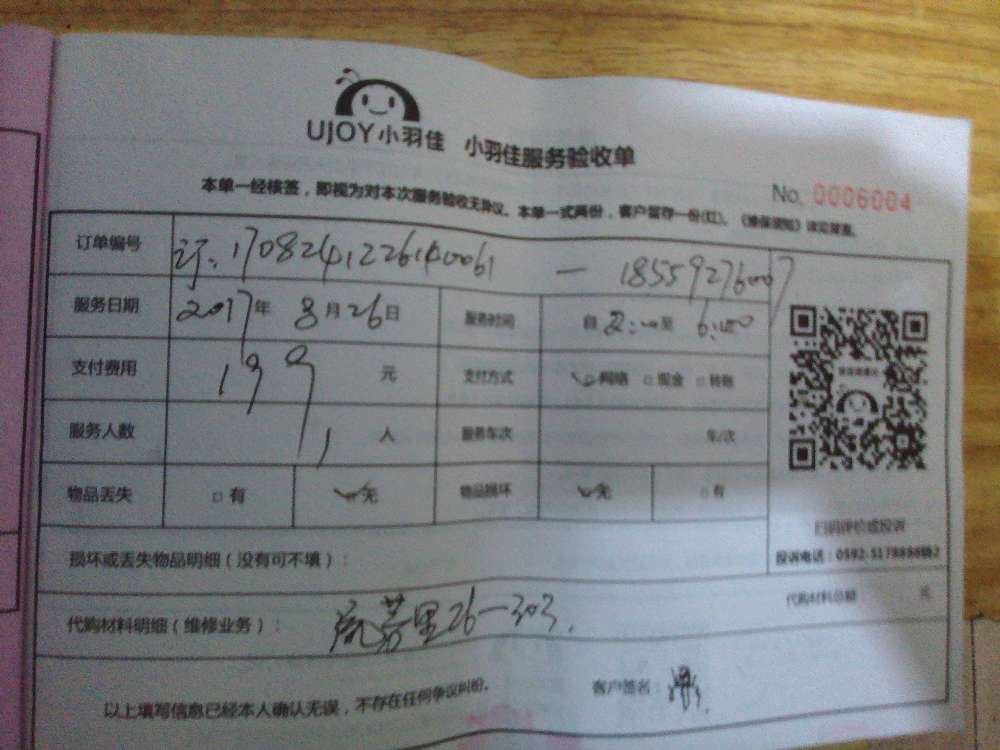 UJOY小羽佳 小羽佳服务验收单
No. 0006004
本单一经核签，即视为对本次服务验收无异议。本单一式两份，客户留存一份(红)。《维保须知》详见背面。
订单编号 订：1708241226140061 — 18559276007
服务日期 2017年 8月26日 服务时间 自 2:00至 6:00
支付费用 199 元 支付方式 ☑网络 □现金 □转账
服务人数 1 人 服务车次 车/次
物品丢失 □有 ☑无 物品损坏 ☑无 □有
扫码评价或投诉
投诉电话：0592-5178888转2
损坏或丢失物品明细（没有可不填）：
代购材料明细（维修业务）： 里26-303. 代购材料总额 元
以上填写信息已经本人确认无误，不存在任何争议纠纷。 客户签名：